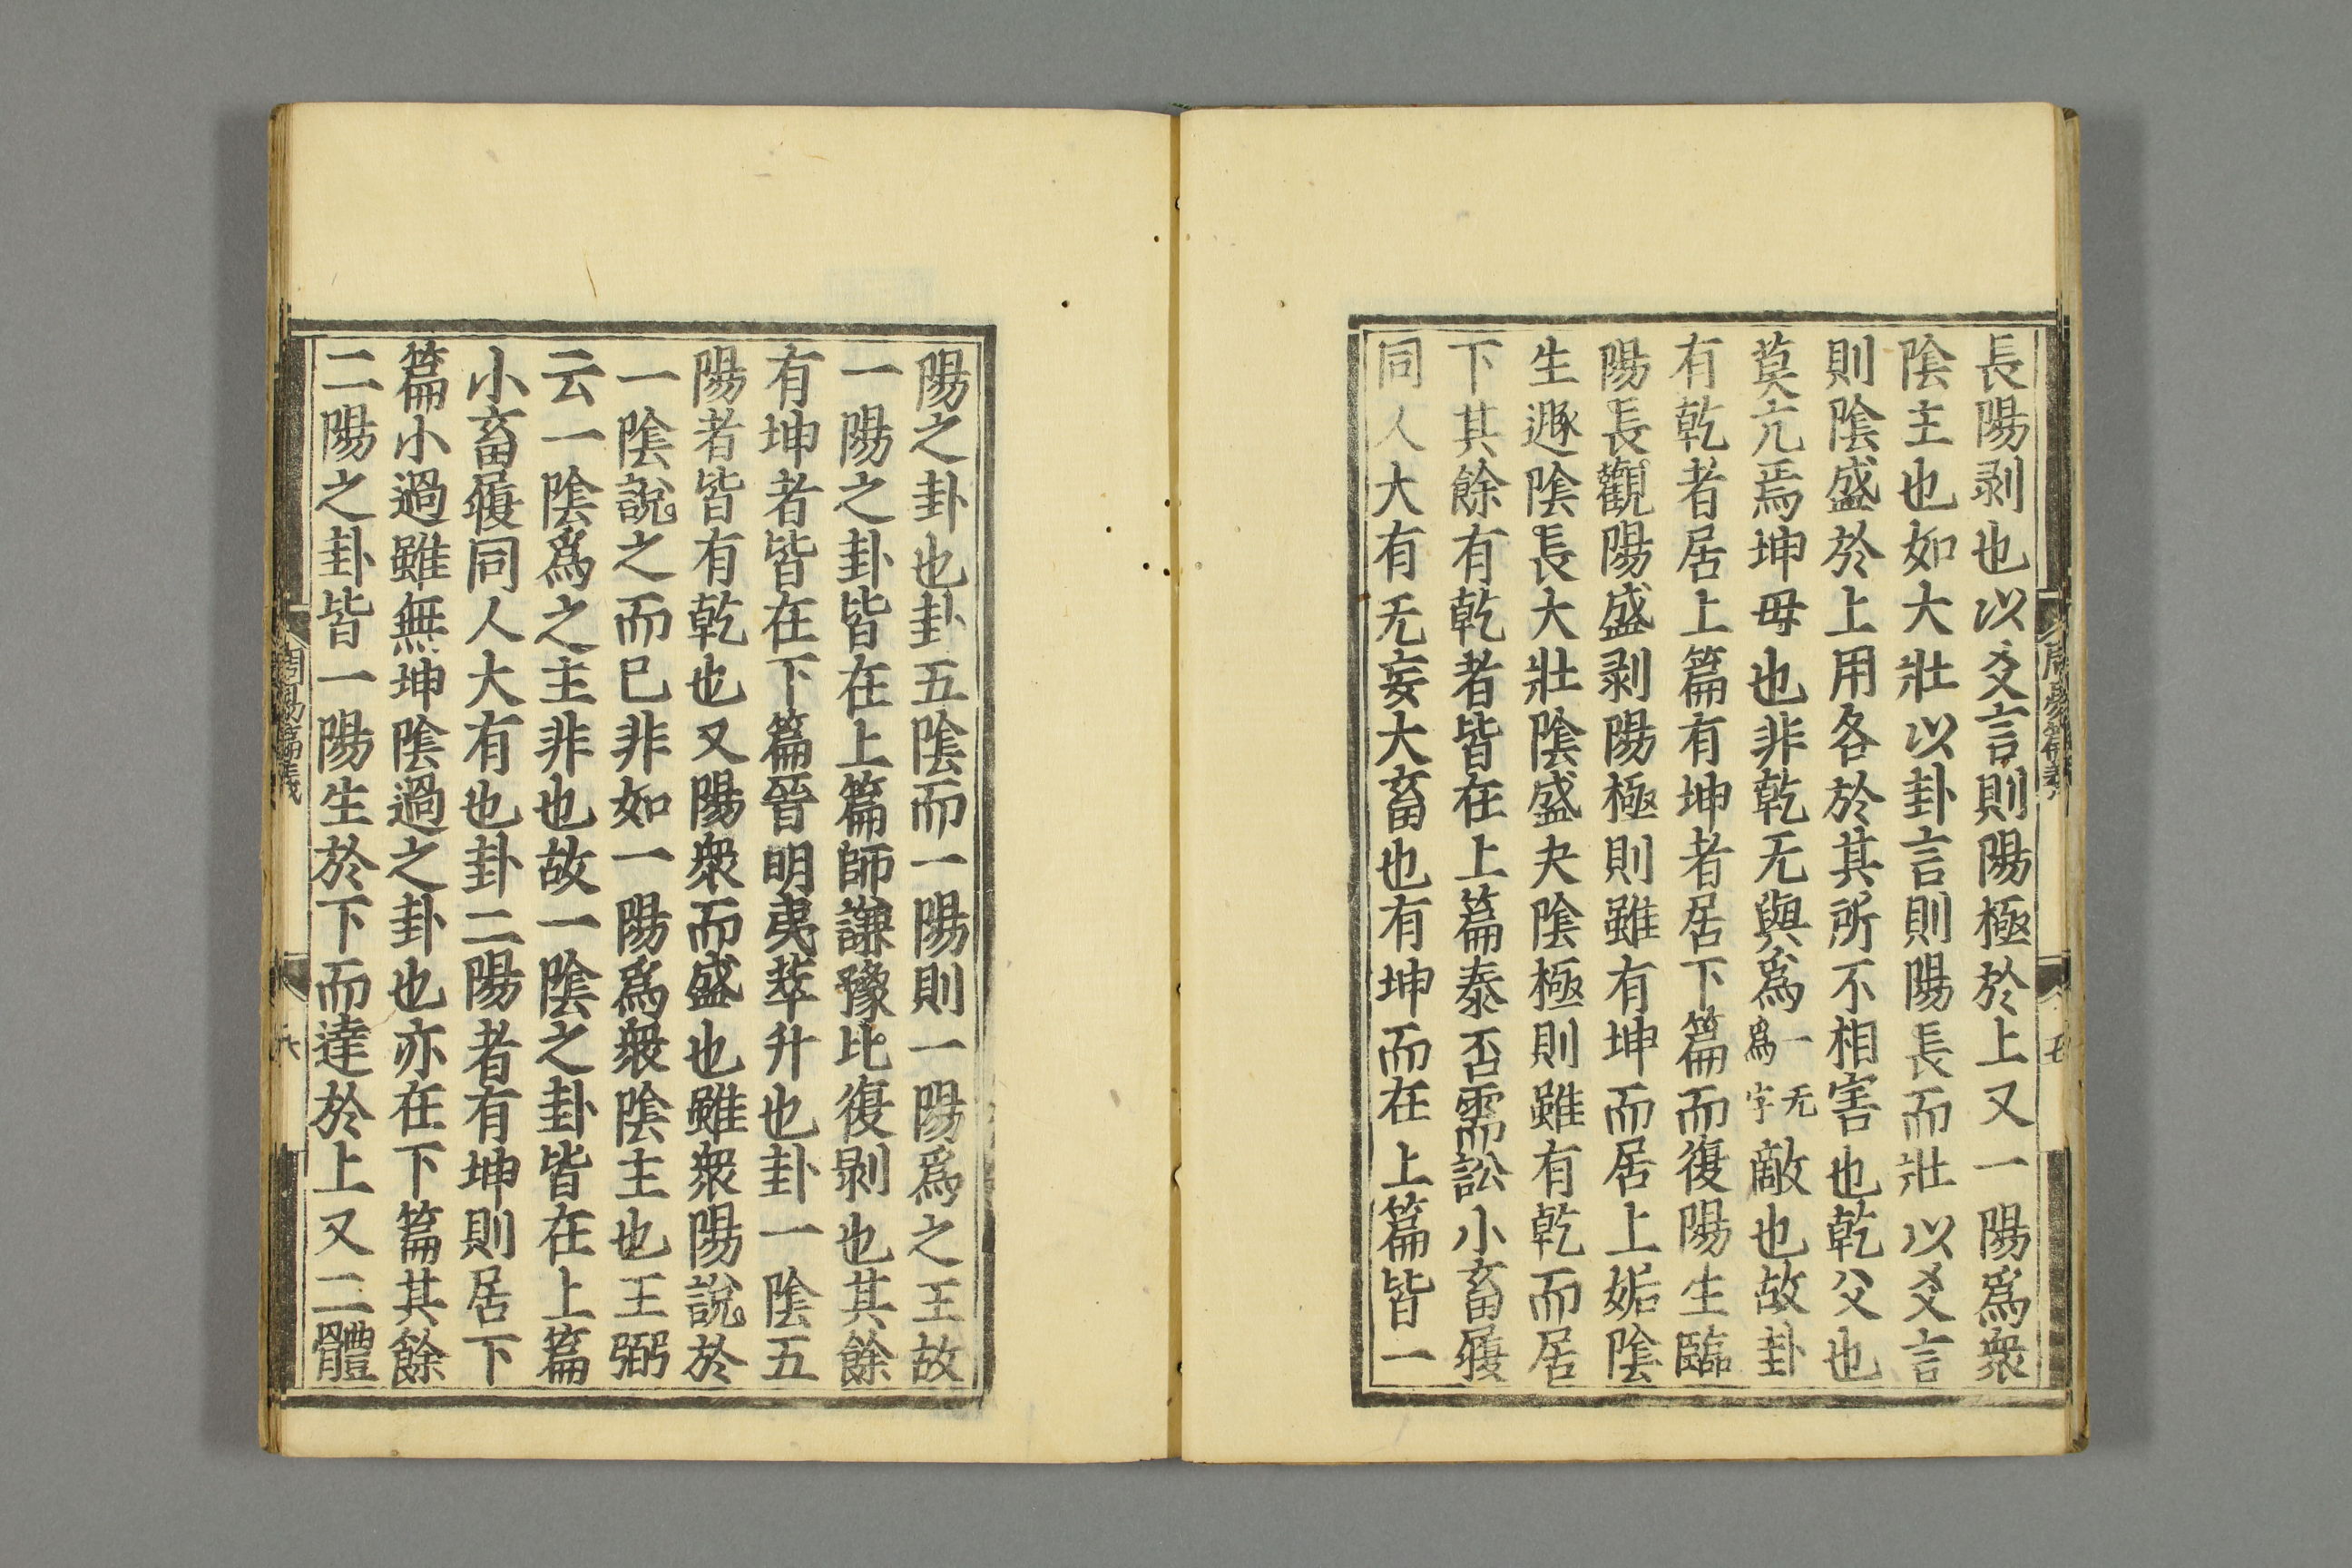 長陽剥也以爻言則陽極於上又一陽爲衆
陰主也如大壯以卦言則陽長而壯以爻言
則陰盛於上用各於其所不相害也乾父也
莫亢焉坤母也非乾无與爲一无爲字敵也故卦
有乾者居上篇有坤者居下篇而復陽生臨
陽長觀陽盛剥陽極則雖有坤而居上姤陰
生遯陰長大壯陰盛夬陰極則雖有乾而居
下其餘有乾者皆在上篇泰否需訟小畜履
同人大有无妄大畜也有坤而在上篇皆一
周易篇義
五
陽之卦也卦五陰而一陽則一陽爲之主故
一陽之卦皆在上篇師謙豫比復剥也其餘
有坤者皆在下篇晉明夷萃升也卦一陰五
陽者皆有乾也又陽衆而盛也雖衆陽說於
一陰說之而已非如一陽爲衆陰主也王弼
云一陰爲之主非也故一陰之卦皆在上篇
小畜履同人大有也卦二陽者有坤則居下
篇小過雖無坤陰過之卦也亦在下篇其餘
二陽之卦皆一陽生於下而達於上又二體
周易篇義
六